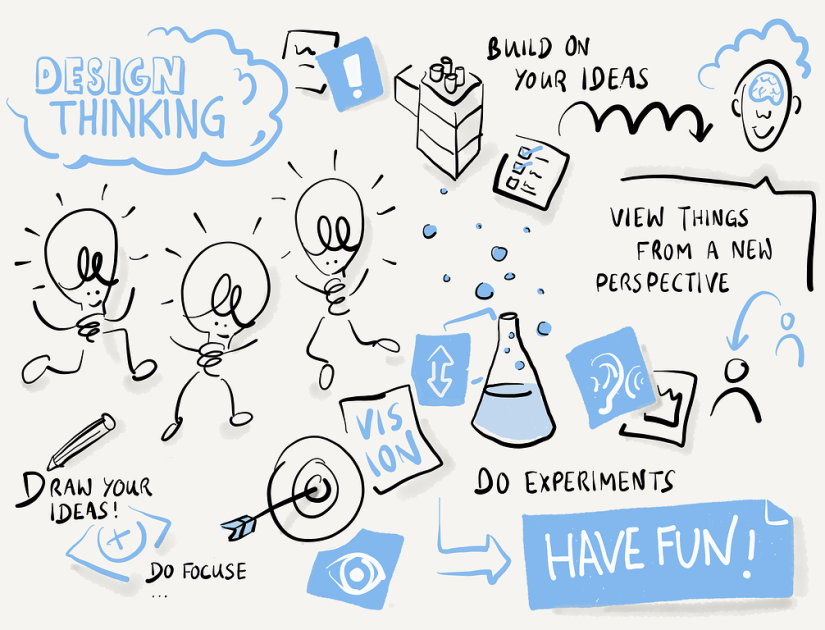 DESIGN
THINKING
!
BUILD ON
YOUR IDEAS
VIEW THINGS
FROM A NEW
PERSPECTIVE
VIS
ION
DRAW YOUR
IDEAS!
DO FOCUSE
...
DO EXPERIMENTS
HAVE FUN!